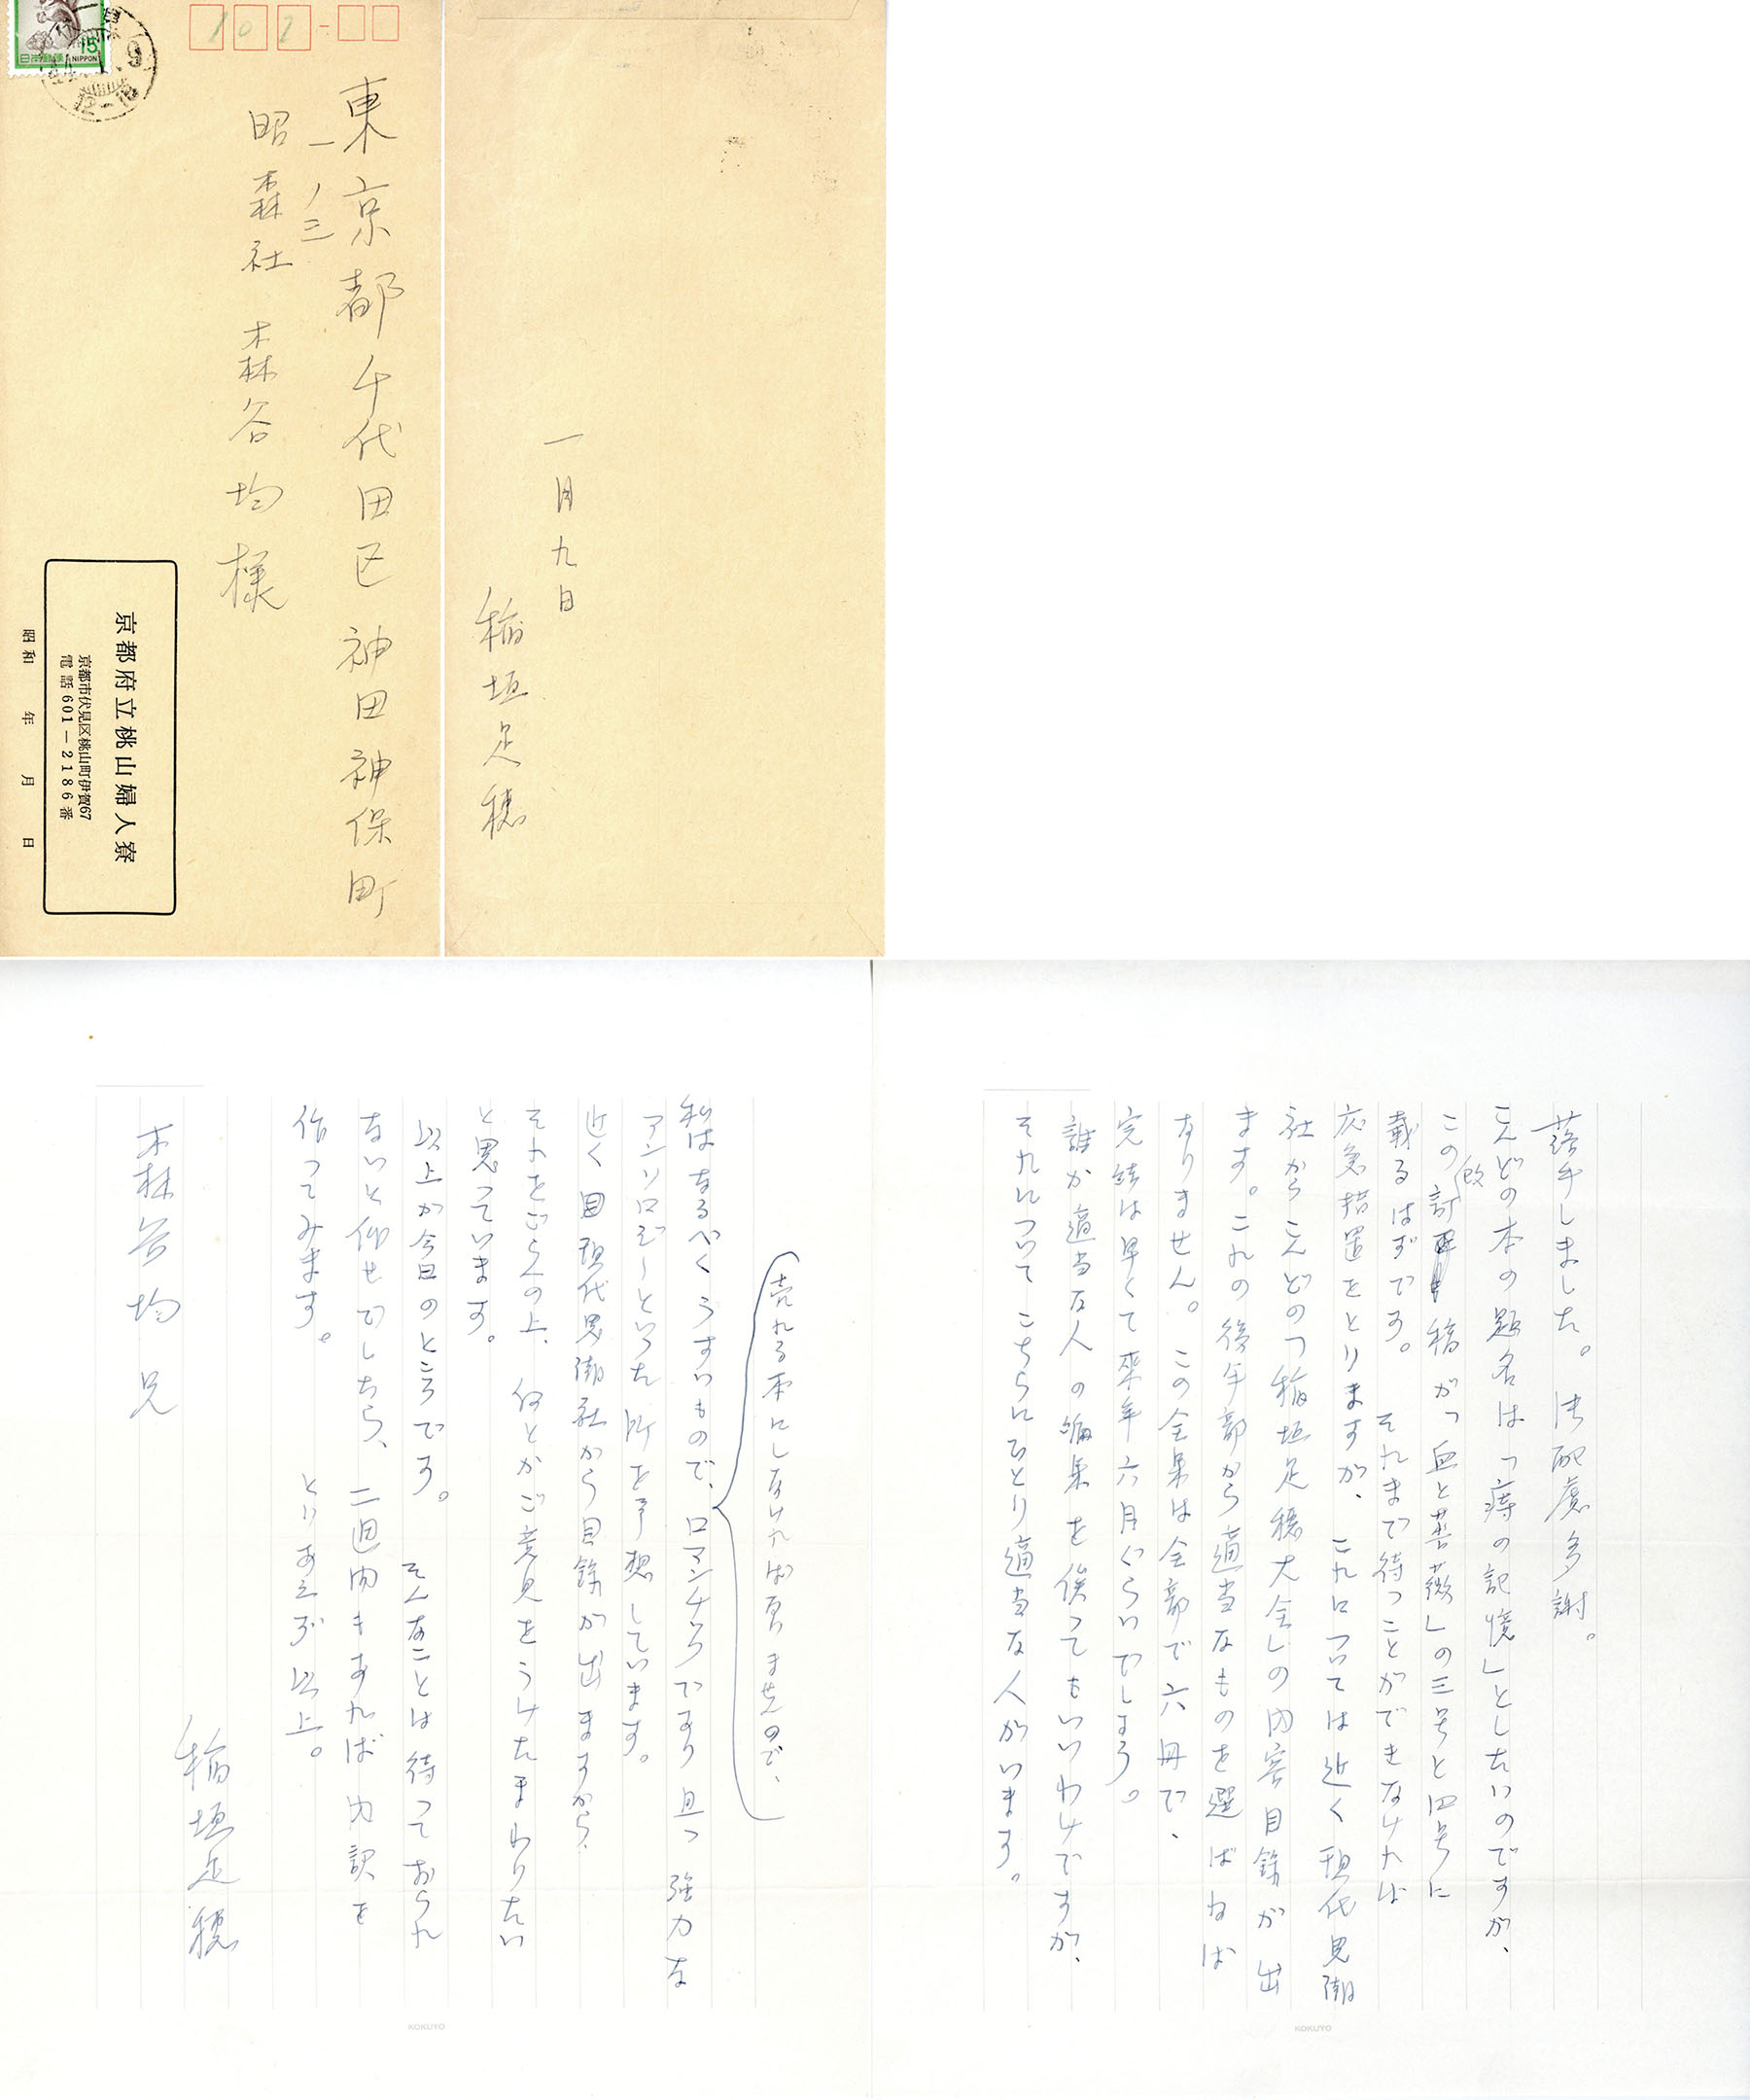 102
15
日本郵便
NIPPON
9
12-18
東京都千代田区神田神保町
一ノ三
昭森社 森谷均様
京都府立桃山婦人寮
京都市伏見区桃山町伊賀67
電話601-2186番
昭和 年 月 日
一月九日
稲垣足穂
落手しました。御配慮多謝。
こんどの本の題名は「痔の記憶」としたいのですが、
この改訂稿が「血と薔薇」の三号と四号に
載るはずです。それまで待つことができなければ
応急措置をとりますが、これについては近く現代思潮
社からこんどの「稲垣足穂大全」の内容目録が出
ます。これの後半部から適当なものを選ばねば
なりません。この全集は全部で六冊で、
完結は早くて来年六月ぐらいでしょう。
誰か適当な人の編集を俟ってもいいわけですが、
それについてこちらにひとり適当な人がいます。
売れる本にしなければ原りませんので、
私はなるべくうすいもので、ロマンチックであり且つ強力な
アンソロジーといった所を予想しています。
近く現代思潮社から目録が出ますから、
それをごらんの上、何とかご意見をうけたまわりたい
と思っています。
以上が今日のところです。そんなことは待っておられ
ないと仰せでしたら、二週間もあれば内訳を
作ってみます。
とりあえず以上。
稲垣足穂
森谷均兄
KOKUYO
KOKUYO